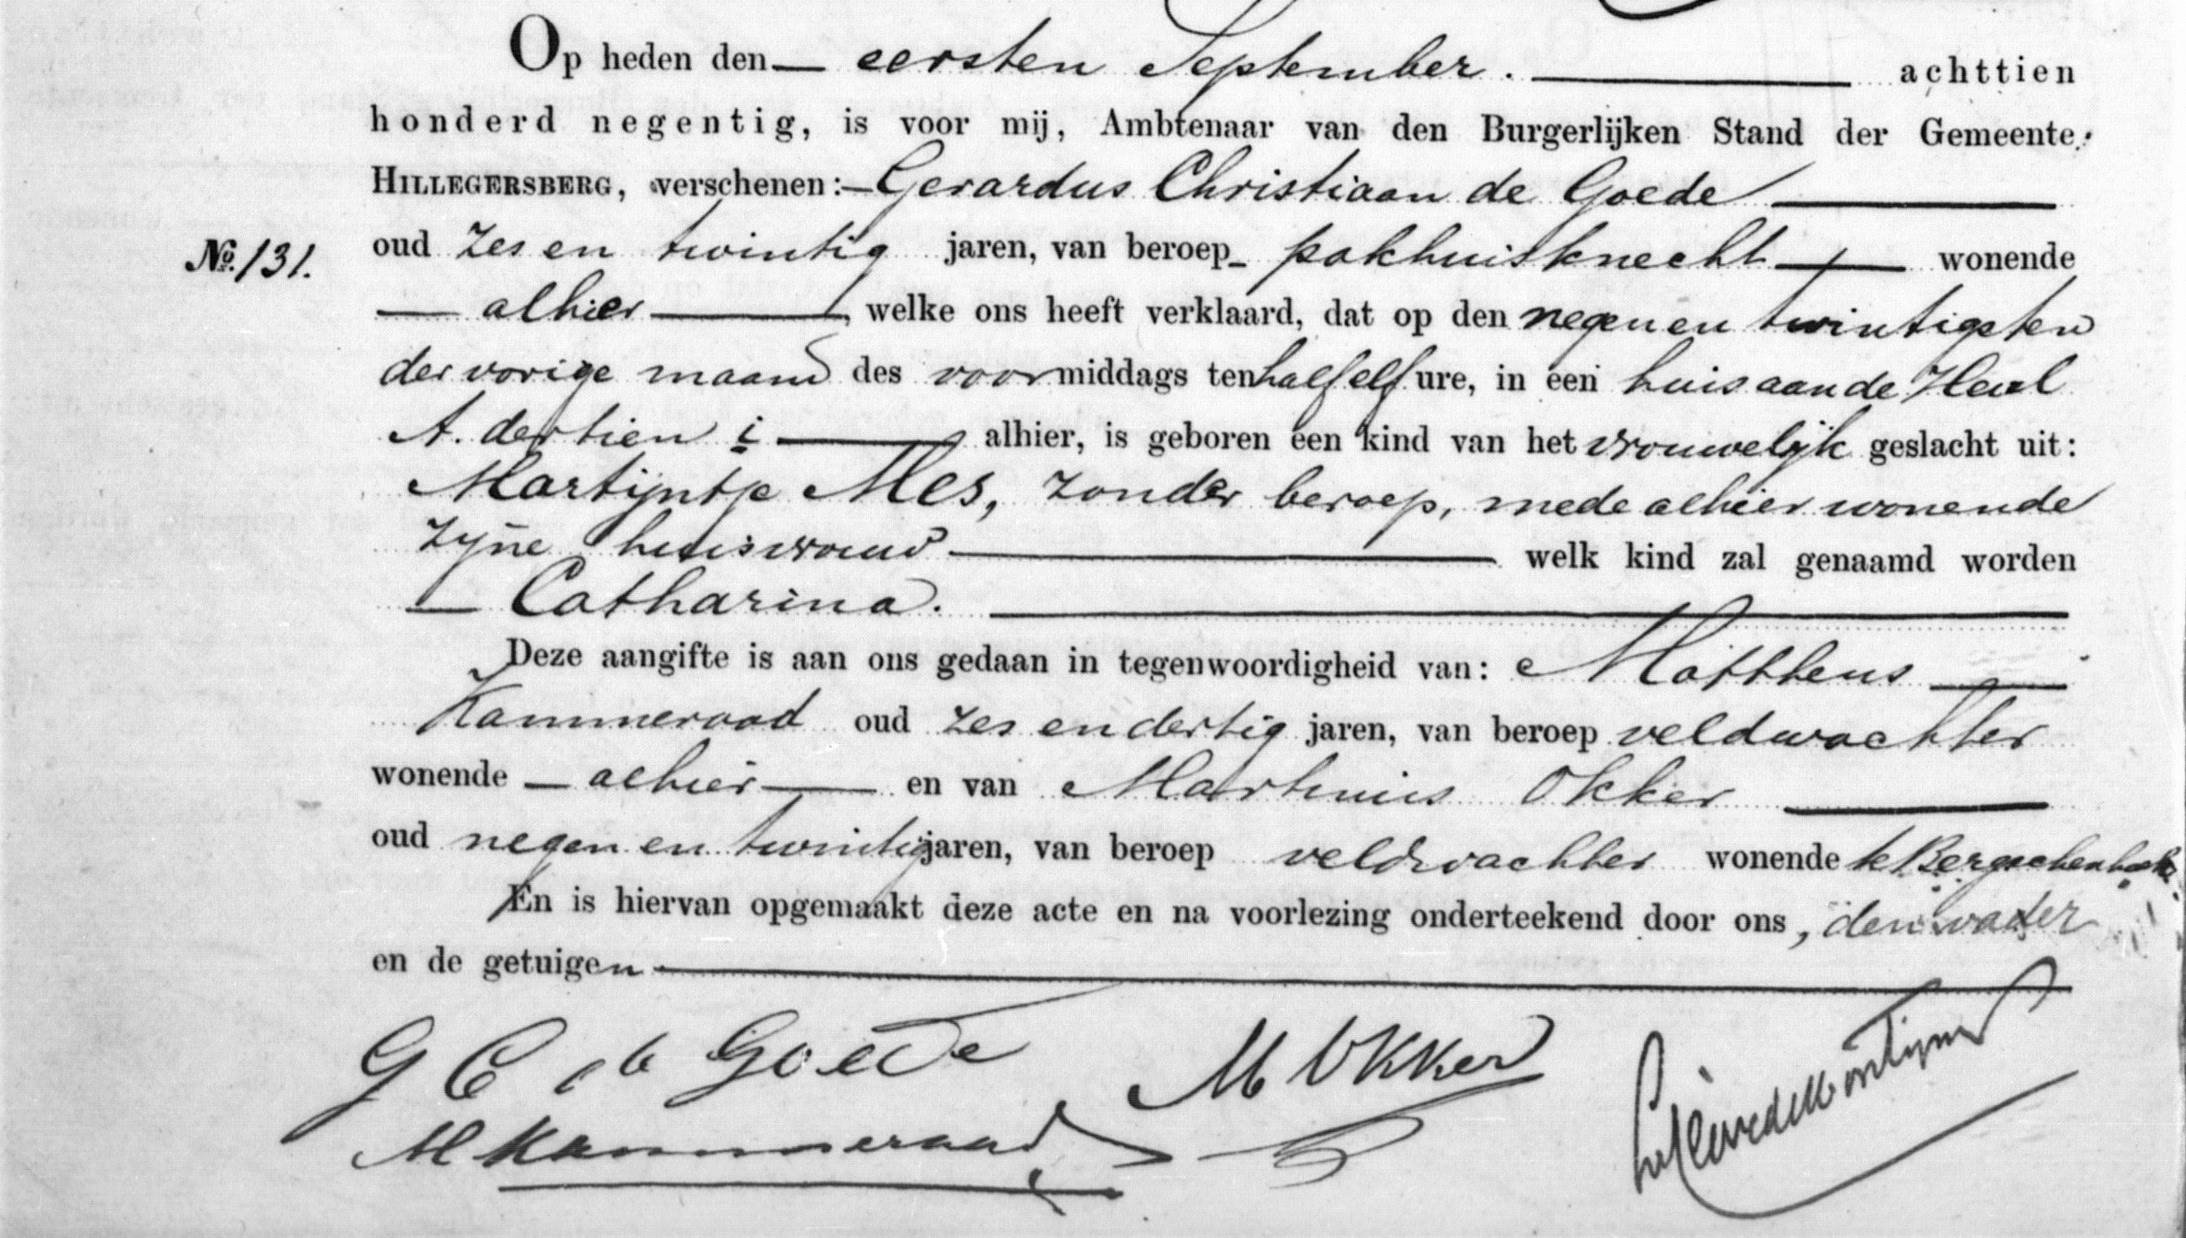 Op heden den — eersten September. — achttien
honderd negentig, is voor mij, Ambtenaar van den Burgerlijken Stand der Gemeente
HILLEGERSBERG, verschenen: — Gerardus Christiaan de Goede —
No. 131.
oud zes en twintig jaren, van beroep pakhuisknecht — wonende
— alhier —, welke ons heeft verklaard, dat op den negen en twintigsten
der vorige maand des voormiddags ten half elf ure, in een huis aan de Heul
A. dertien i — alhier, is geboren een kind van het vrouwelijk geslacht uit:
Martijntje Mes, zonder beroep, mede alhier wonende
zijne huisvrouw — welk kind zal genaamd worden
— Catharina. —
Deze aangifte is aan ons gedaan in tegenwoordigheid van: Mattheus —
Kammeraad oud zes en dertig jaren, van beroep veldwachter
wonende — alhier — en van Martinus Okker —
oud negen en twintig jaren, van beroep veldwachter wonende te Bergschenhoek.
En is hiervan opgemaakt deze acte en na voorlezing onderteekend door ons, den vader
en de getuigen —
G C de Goede M Okker
M Kammeraad